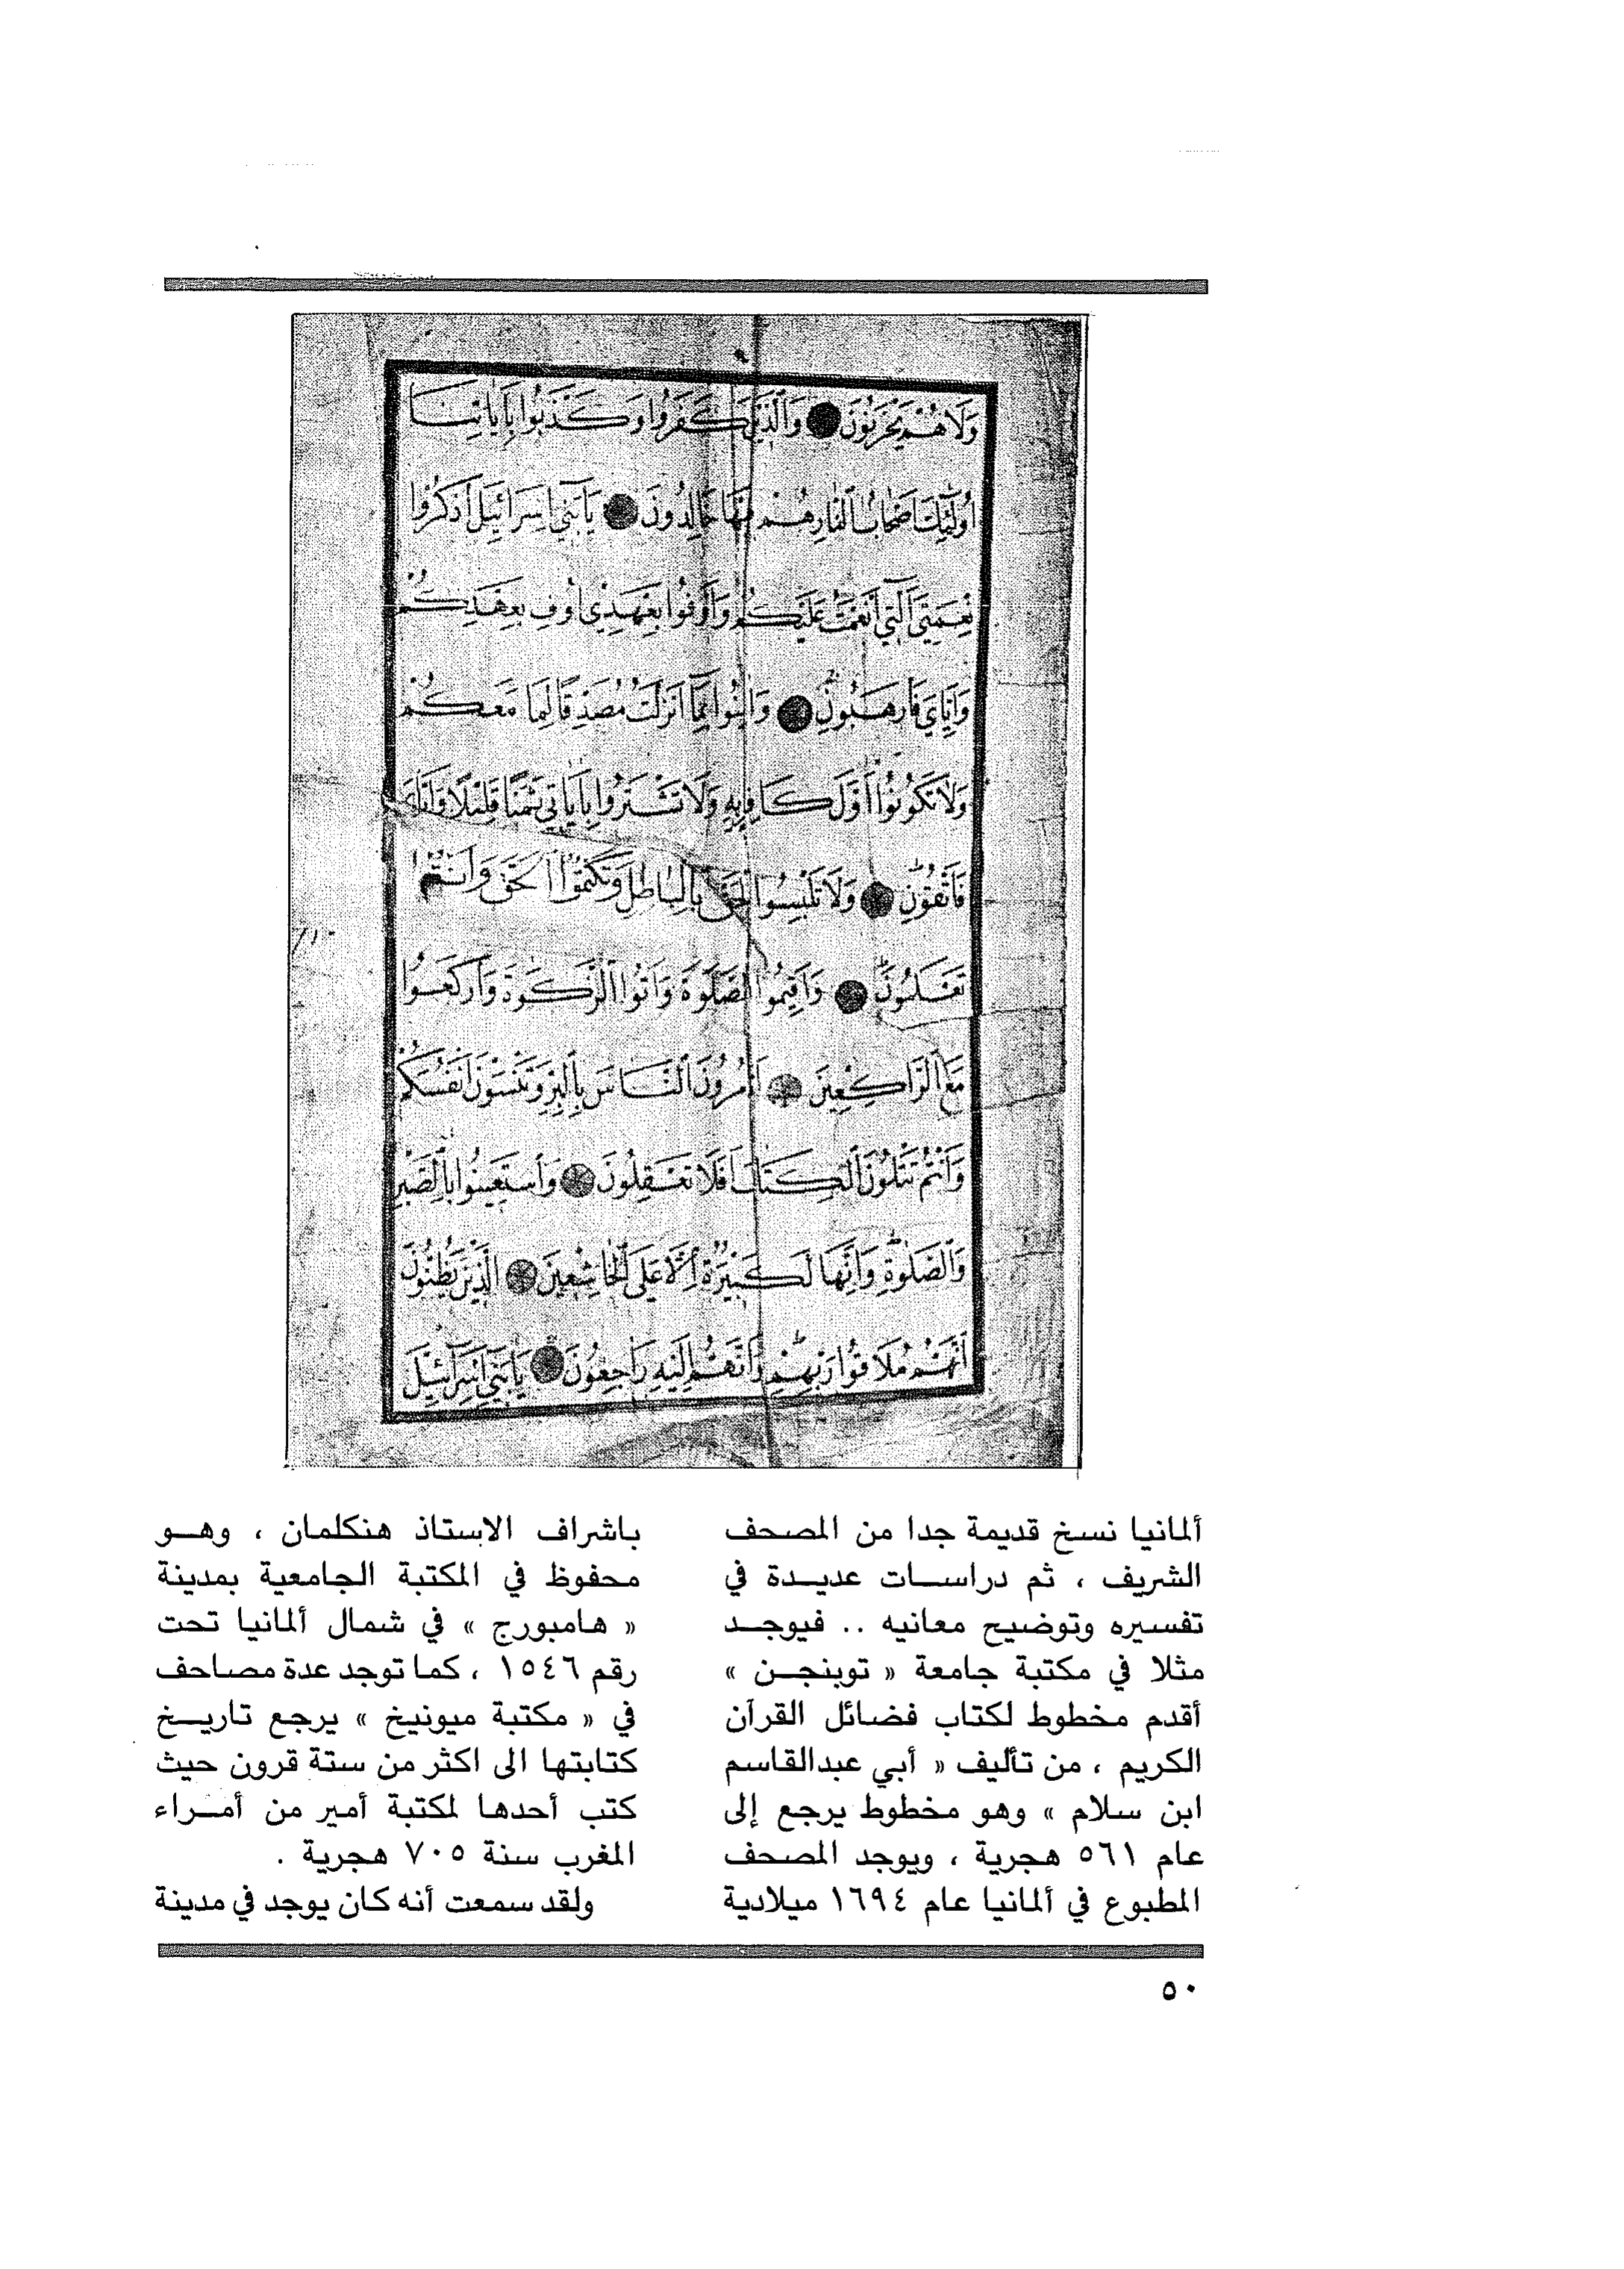 وَلَا هُمْ يَحْزَنُونَ وَالَّذِينَ كَفَرُوا وَكَذَّبُوا بِآيَاتِنَا
أُولَئِكَ أَصْحَابُ النَّارِ هُمْ فِيهَا خَالِدُونَ يَا بَنِي إِسْرَائِيلَ اذْكُرُوا
نِعْمَتِيَ الَّتِي أَنْعَمْتُ عَلَيْكُمْ وَأَوْفُوا بِعَهْدِي أُوفِ بِعَهْدِكُمْ
وَإِيَّايَ فَارْهَبُونِ وَآمِنُوا بِمَا أَنْزَلْتُ مُصَدِّقًا لِمَا مَعَكُمْ
وَلَا تَكُونُوا أَوَّلَ كَافِرٍ بِهِ وَلَا تَشْتَرُوا بِآيَاتِي ثَمَنًا قَلِيلًا وَإِيَّايَ
فَاتَّقُونِ وَلَا تَلْبِسُوا الْحَقَّ بِالْبَاطِلِ وَتَكْتُمُوا الْحَقَّ وَأَنْتُمْ
تَعْلَمُونَ وَأَقِيمُوا الصَّلَوةَ وَآتُوا الزَّكَوةَ وَارْكَعُوا
مَعَ الرَّاكِعِينَ أَتَأْمُرُونَ النَّاسَ بِالْبِرِّ وَتَنْسَوْنَ أَنْفُسَكُمْ
وَأَنْتُمْ تَتْلُونَ الْكِتَابَ أَفَلَا تَعْقِلُونَ وَاسْتَعِينُوا بِالصَّبْرِ
وَالصَّلَوةِ وَإِنَّهَا لَكَبِيرَةٌ إِلَّا عَلَى الْخَاشِعِينَ الَّذِينَ يَظُنُّونَ
أَنَّهُمْ مُلَاقُوا رَبِّهِمْ وَأَنَّهُمْ إِلَيْهِ رَاجِعُونَ يَا بَنِي إِسْرَائِيلَ
ألمانيا نسخ قديمة جدا من المصحف
الشريف ، ثم دراسات عديدة في
تفسيره وتوضيح معانيه .. فيوجد
مثلا في مكتبة جامعة « توبنجن »
أقدم مخطوط لكتاب فضائل القرآن
الكريم ، من تأليف « أبي عبدالقاسم
ابن سلام » وهو مخطوط يرجع إلى
عام ٥٦١ هجرية ، ويوجد المصحف
المطبوع في ألمانيا عام ١٦٩٤ ميلادية
باشراف الاستاذ هنكلمان ، وهو
محفوظ في المكتبة الجامعية بمدينة
« هامبورج » في شمال ألمانيا تحت
رقم ١٥٤٦ ، كما توجد عدة مصاحف
في « مكتبة ميونيخ » يرجع تاريخ
كتابتها الى اكثر من ستة قرون حيث
كتب أحدها لمكتبة أمير من أمراء
المغرب سنة ٧٠٥ هجرية .
ولقد سمعت أنه كان يوجد في مدينة
٥٠